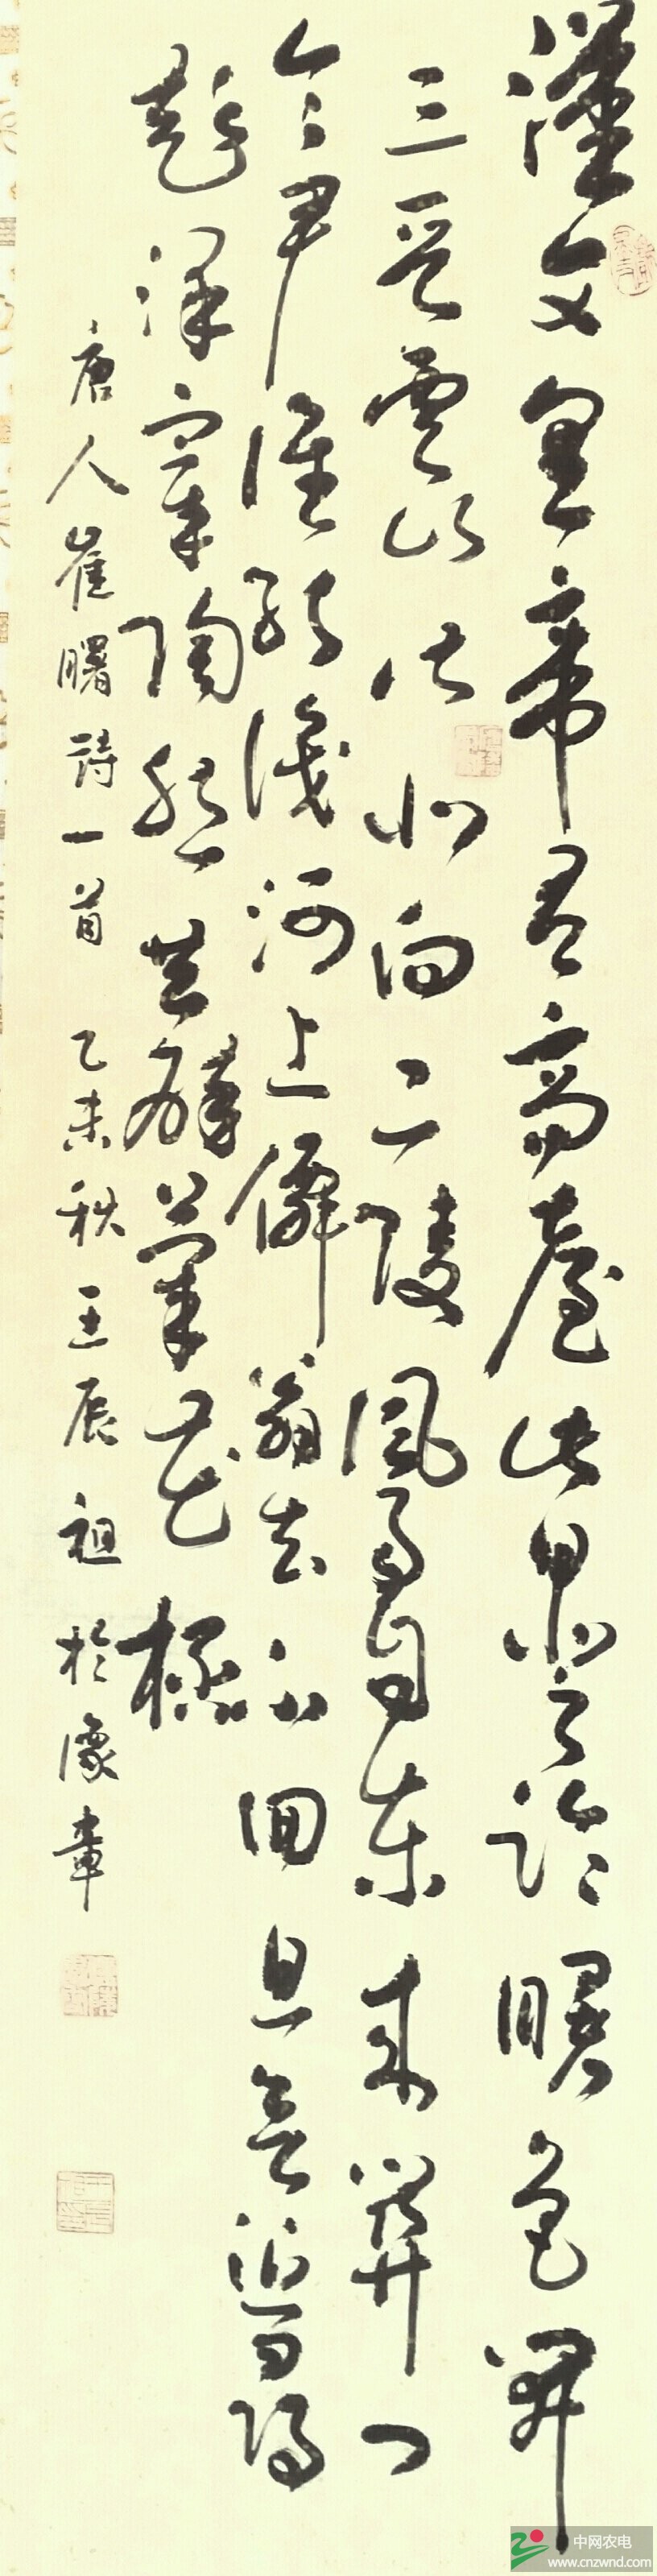 漢文皇帝有高臺此日登臨曙色開
三晉雲山皆北向二陵風雨自東來開門
令尹誰能識河上僊翁去不回且欲近尋
彭澤宰陶然共醉菊花杯
唐人崔曙詩一首 乙未秋王辰祖於豫章
中网农电
www.cnzwnd.com